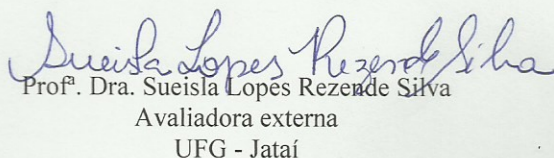 Sueisla Lopes Rezende Silva
Profª. Dra. Sueisla Lopes Rezende Silva
Avaliadora externa
UFG - Jataí